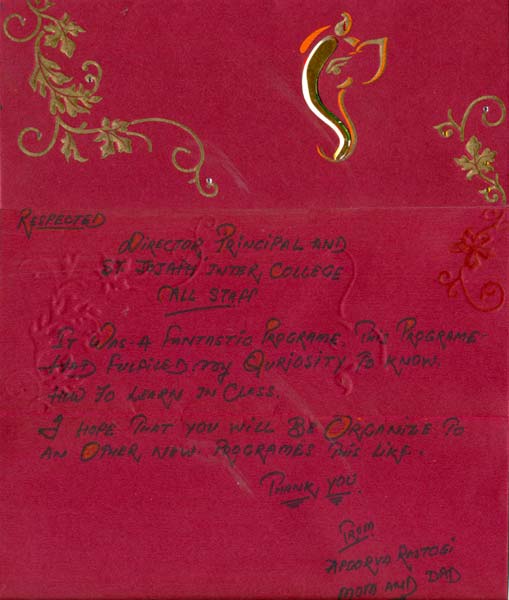 RESPECTED
DIRECTOR, PRINCIPAL AND
ST. JOSAIPH INTER, COLLEGE
ALL STAFF
IT WAS A FANTASTIC PROGRAME. THIS PROGRAME
HAD FULFILED MY QURIOSITY TO KNOW
HOW TO LEARN IN CLASS.
I HOPE THAT YOU WILL BE ORGANIZE TO
AN OTHER, NEW PROGRAMES THIS LIKE.
THANK YOU.
FROM
APOORVA RASTOGI
MOM AND DAD